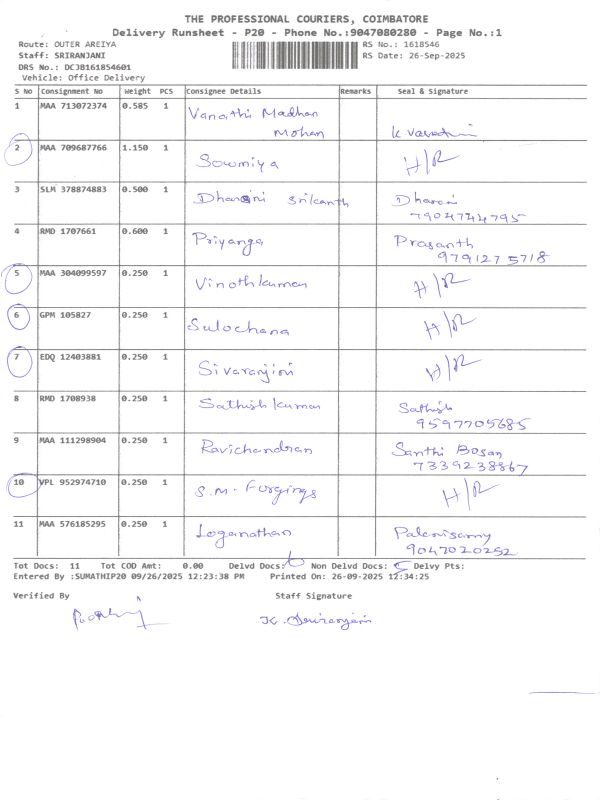 THE PROFESSIONAL COURIERS, COIMBATORE
Delivery Runsheet - P20 - Phone No.:9047080280 - Page No.:1
Route: OUTER AREIYA RS No.: 1618546
Staff: SRIRANJANI RS Date: 26-Sep-2025
DRS No.: DCJB161854601
Vehicle: Office Delivery
S No Consignment No Weight PCS Consignee Details Remarks Seal & Signature
1 MAA 713072374 0.585 1 Vanathi Madhan
Mohan K
2 MAA 709687766 1.150 1 Sowmiya H/R
3 SLM 378874883 0.500 1 Dharani Srikanth Dharani
7904744795
4 RMD 1707661 0.600 1 Priyanga Prasanth
9791275718
5 MAA 304099597 0.250 1 Vinothkumar H/R
6 GPM 105827 0.250 1 Sulochana H/R
7 EDQ 12403881 0.250 1 Sivaranjini H/R
8 RMD 1708938 0.250 1 Sathish kumar Sathish
9597705685
9 MAA 111298904 0.250 1 Ravichandran Santhi Bosan
7339238867
10 VPL 952974710 0.250 1 S.M. Forgings H/R
11 MAA 576185295 0.250 1 Loganathan Palanisamy
9047020252
Tot Docs: 11 Tot COD Amt: 0.00 Delvd Docs: 6 Non Delvd Docs: 5 Delvy Pts:
Entered By :SUMATHIP20 09/26/2025 12:23:38 PM Printed On: 26-09-2025 12:34:25
Verified By Staff Signature
K. Sriranjani